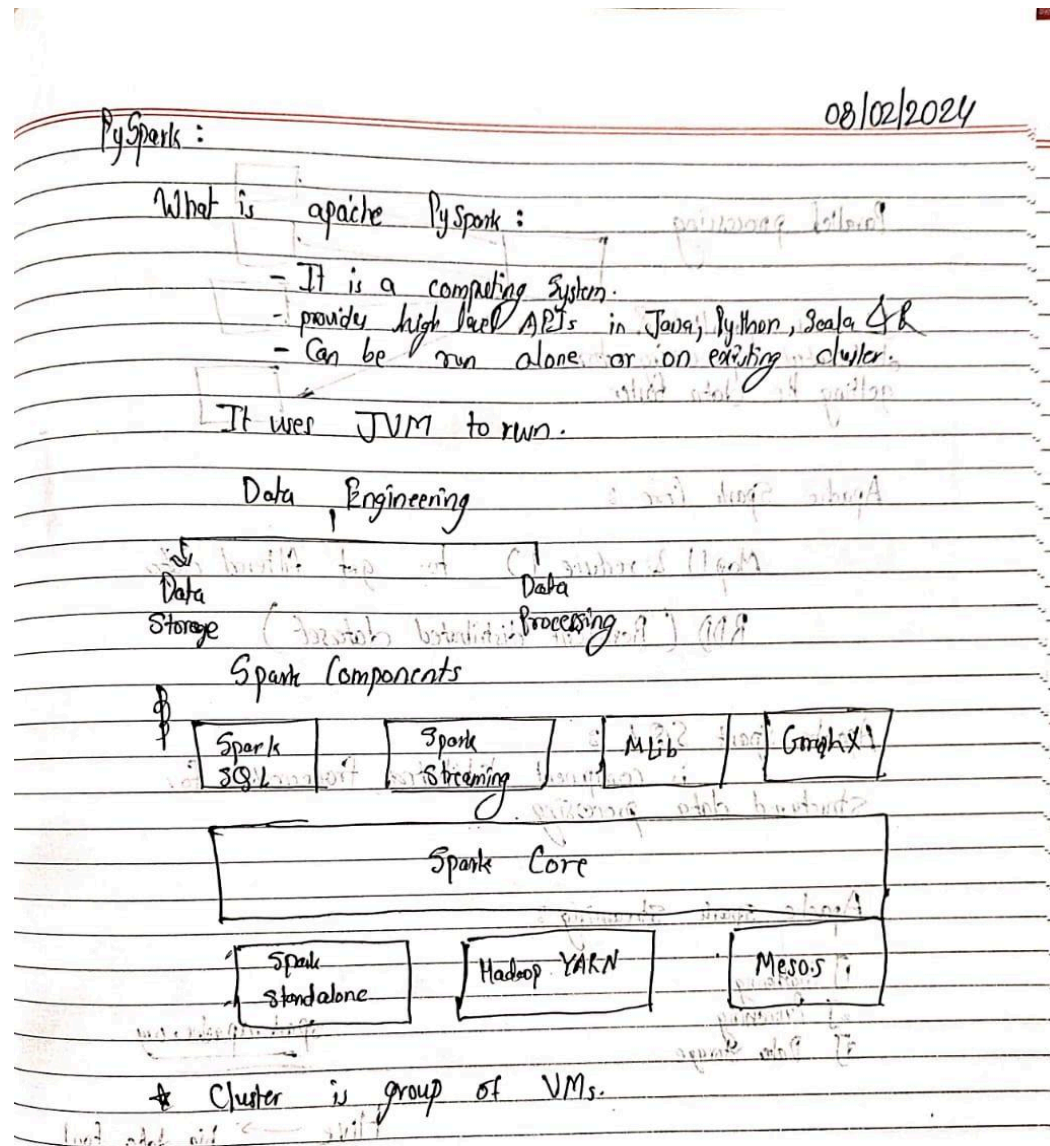 08/02/2024
PySpark :
What is apache PySpark :
- It is a computing System.
- provides high level APIs in Java, Python, Scala & R
- Can be run alone or on existing cluster.
It uses JVM to run.
Data Engineering
Data Data
Storage Processing
Spark Components
Spark Spark MLib GraphX
SQL Streaming
Spark Core
Spark Hadoop YARN Mesos
Standalone
* Cluster is group of VMs.